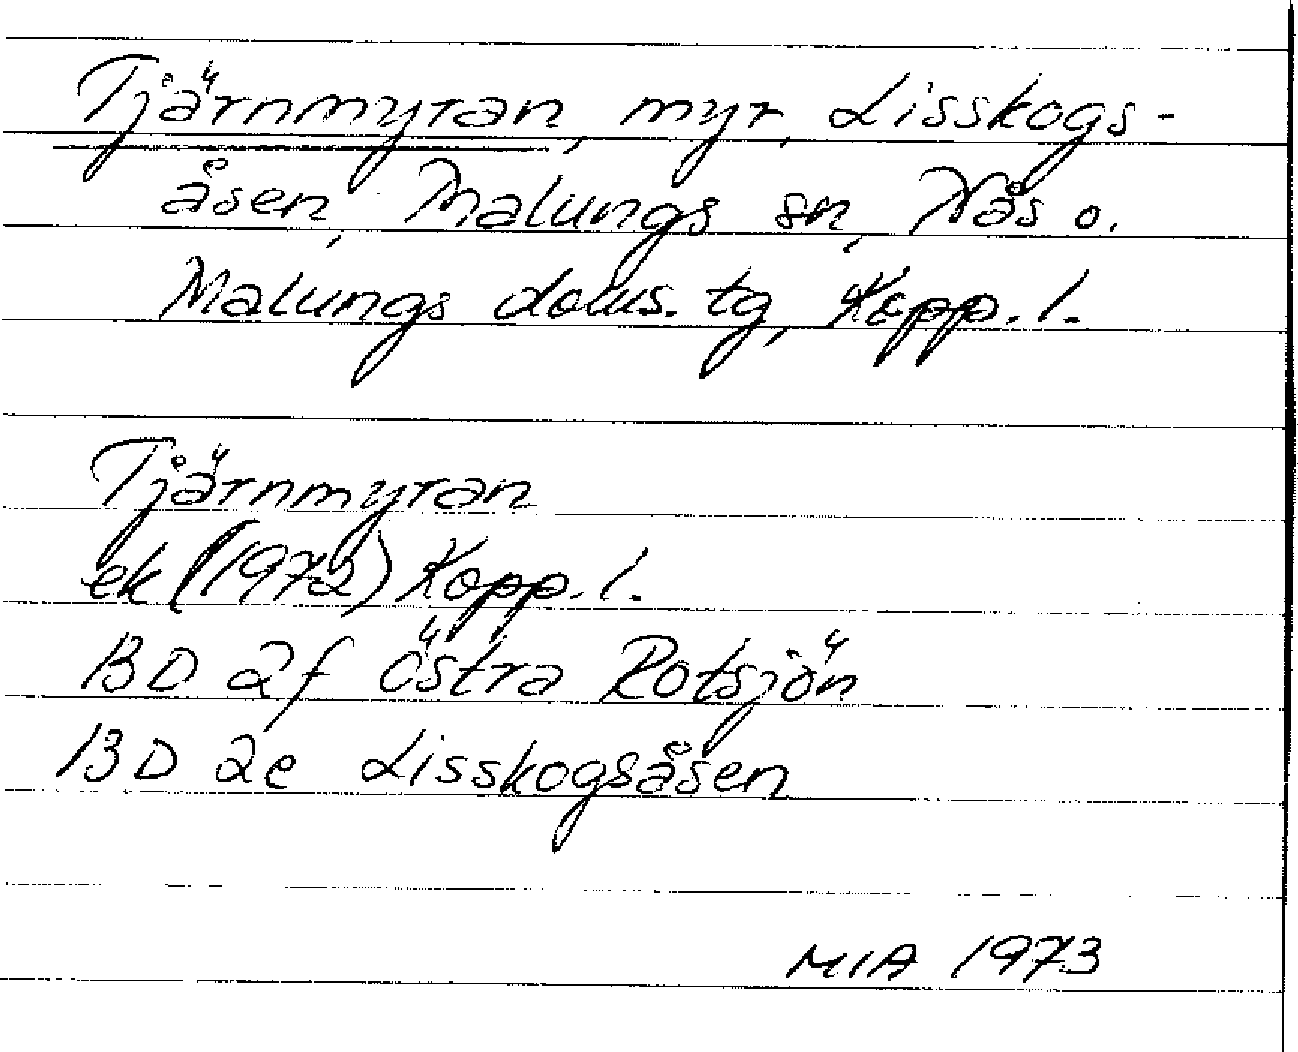 Tjärnmyran, myr, Lisskogs-
åsen, Malungs sn, Nås o.
Malungs doms. tg, Kopp. l.
Tjärnmyran
ek (1972) Kopp. l.
13 D 2f östra Rotsjön
13 D 2e Lisskogsåsen
MIA 1973